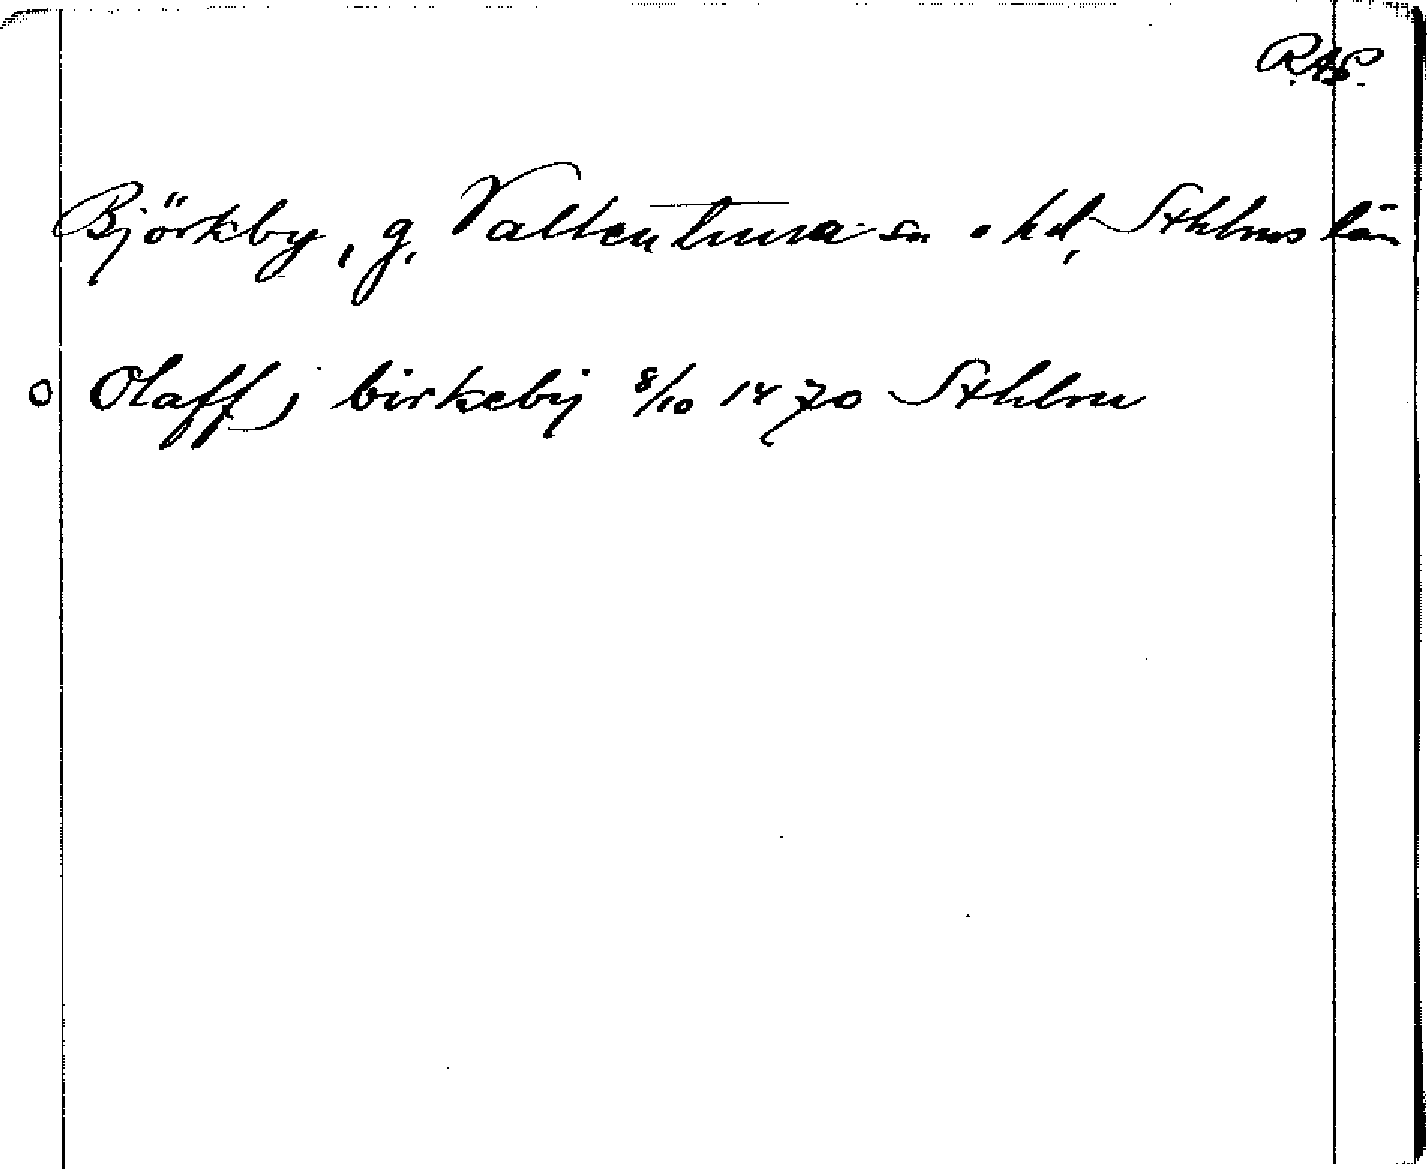 RAP.
Björkby, g, Vallentuna sn o hd, Sthlms län
o Olaff j birkeby 8/10 1470 Sthlm